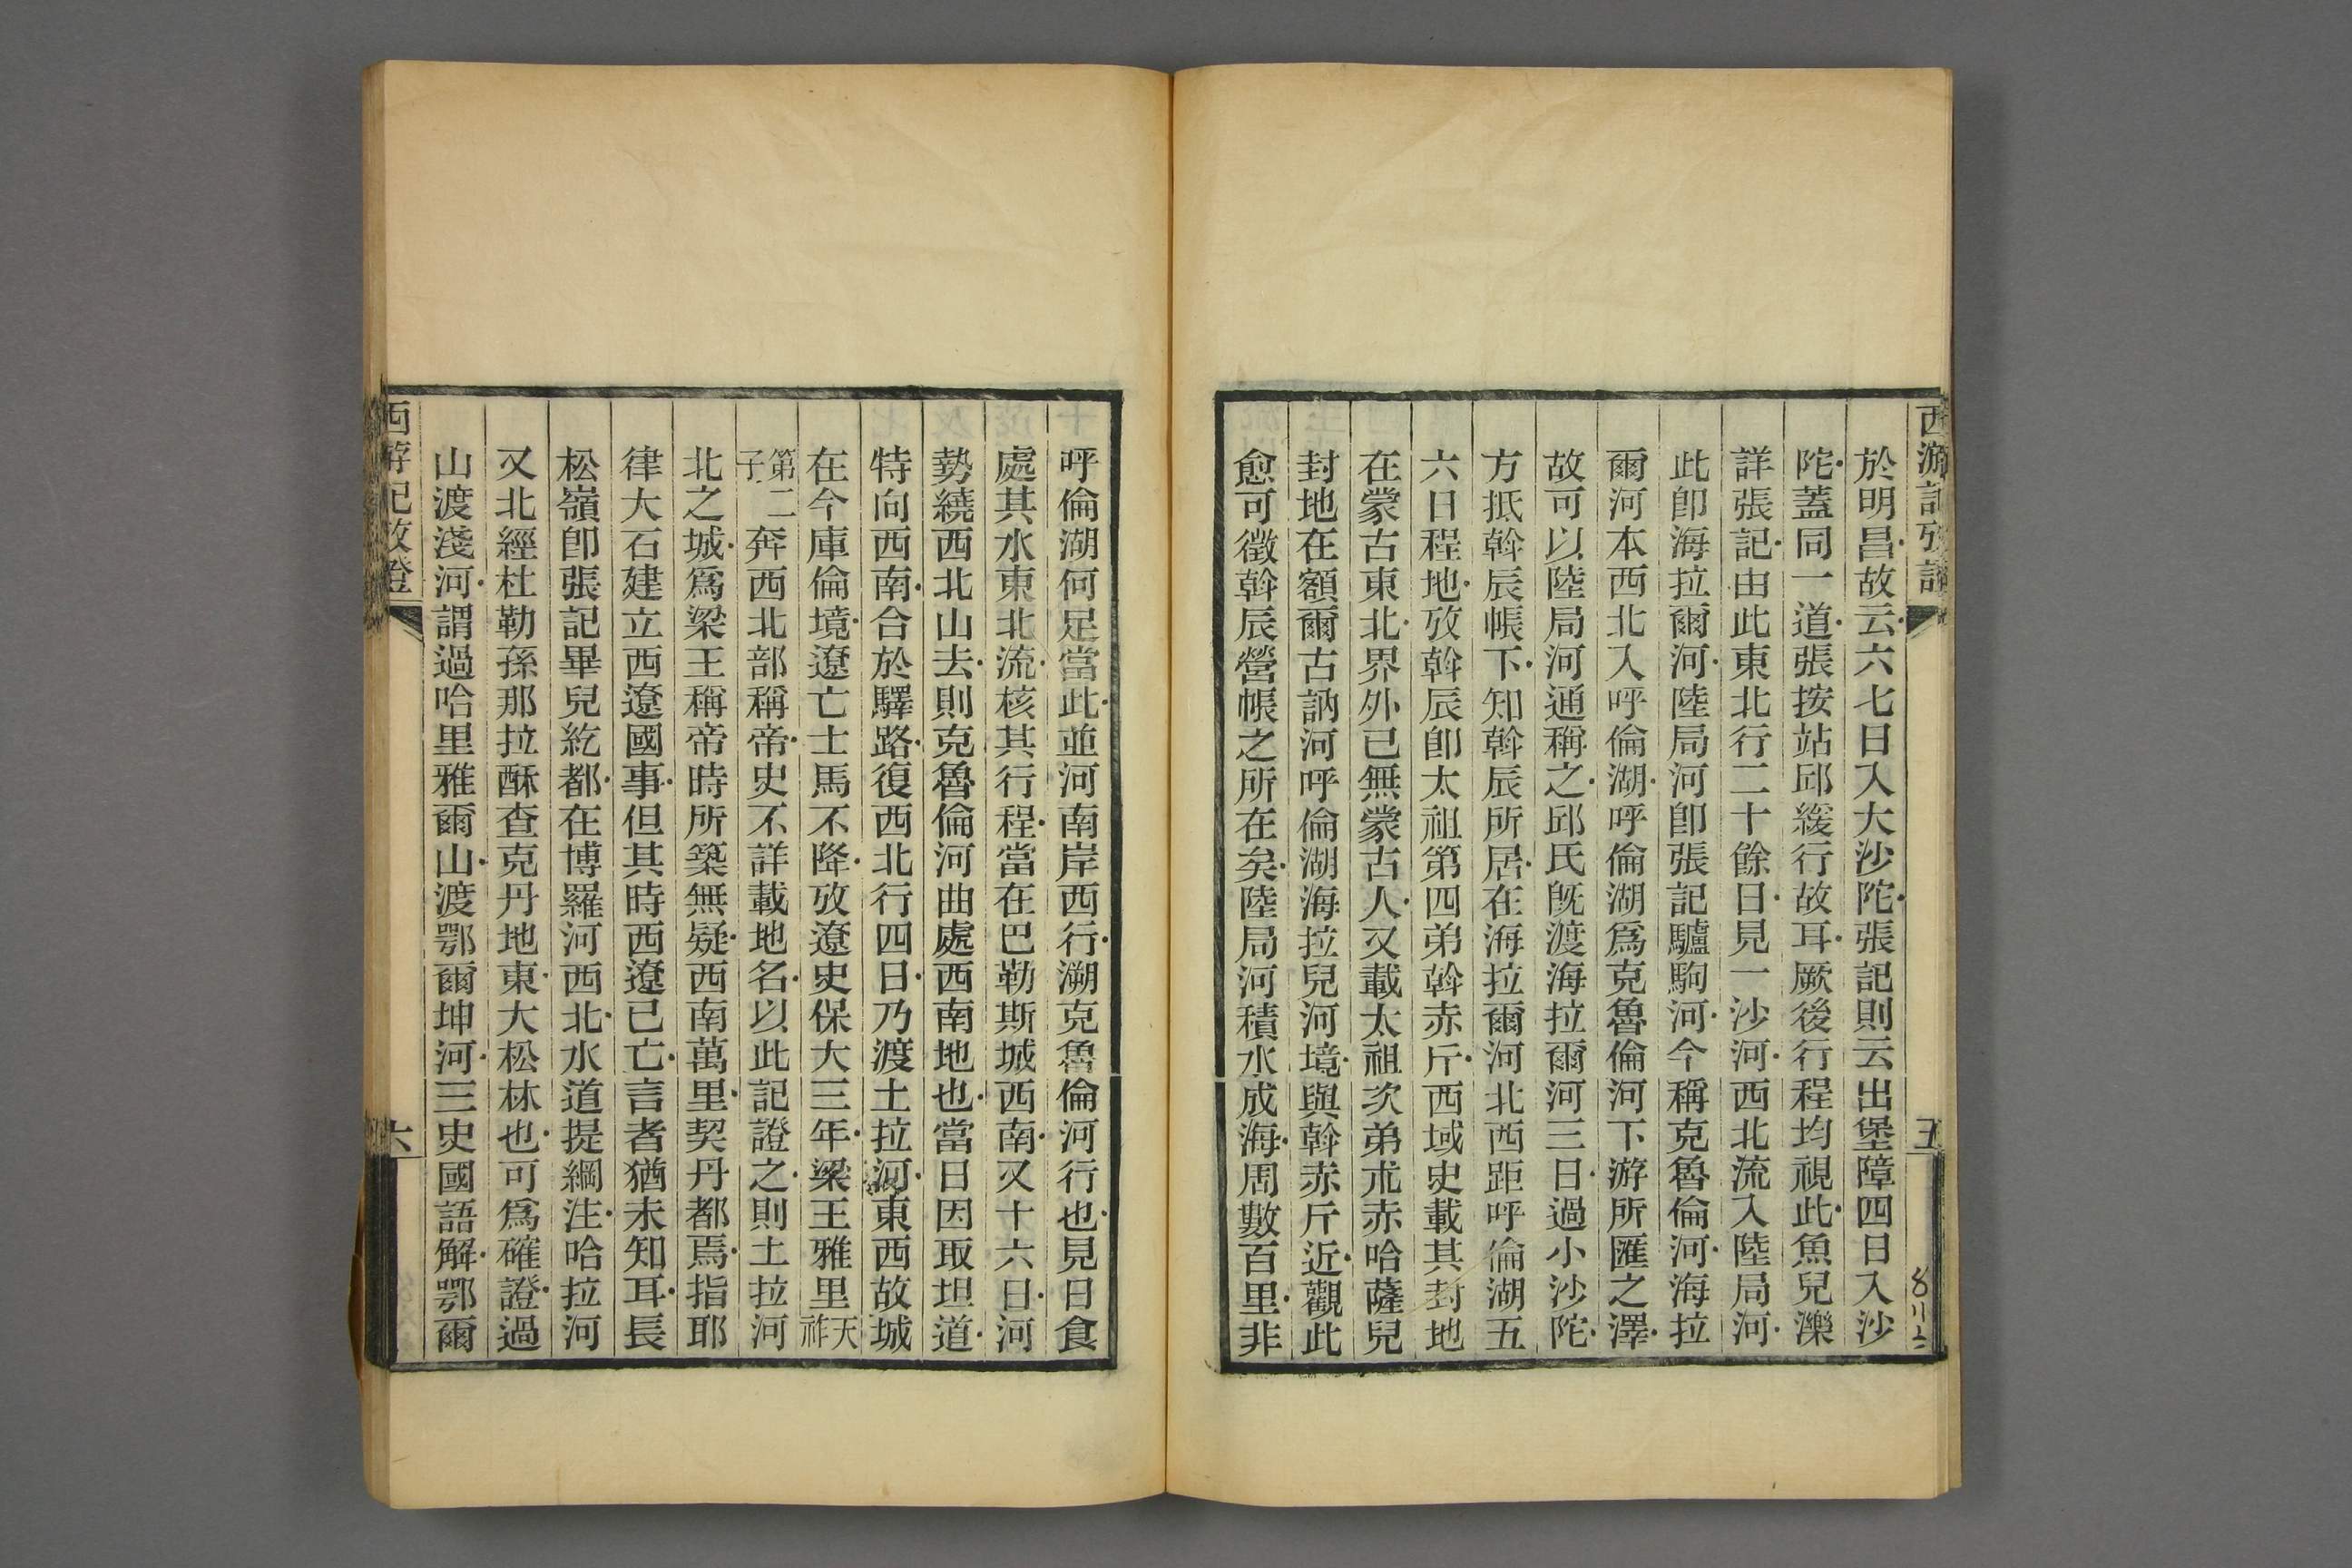 西游記攷證
五
於明昌故云六七日入大沙陀張記則云出堡障四日入沙
陀蓋同一道張按站邱緩行故耳厥後行程均視此魚兒濼
詳張記由此東北行二十餘日見一沙河西北流入陸局河
此卽海拉爾河陸局河卽張記驢駒河今稱克魯倫河海拉
爾河本西北入呼倫湖呼倫湖爲克魯倫河下游所匯之澤
故可以陸局河通稱之邱氏旣渡海拉爾河三日過小沙陀
方抵斡辰帳下知斡辰所居在海拉爾河北西距呼倫湖五
六日程地攷斡辰卽太祖第四弟斡赤斤西域史載其封地
在蒙古東北界外已無蒙古人又載太祖次弟朮赤哈薩兒
封地在額爾古訥河呼倫湖海拉兒河境與斡赤斤近觀此
愈可徵斡辰營帳之所在矣陸局河積水成海周數百里非
呼倫湖何足當此並河南岸西行溯克魯倫河行也見日食
處其水東北流核其行程當在巴勒斯城西南又十六日河
勢繞西北山去則克魯倫河曲處西南地也當日因取坦道
特向西南合於驛路復西北行四日乃渡土拉河東西故城
在今庫倫境遼亡士馬不降攷遼史保大三年梁王雅里天祚
第二子奔西北部稱帝史不詳載地名以此記證之則土拉河
北之城爲梁王稱帝時所築無疑西南萬里契丹都焉指耶
律大石建立西遼國事但其時西遼已亡言者猶未知耳長
松嶺卽張記畢兒紇都在博羅河西北水道提綱注哈拉河
又北經杜勒孫那拉酥查克丹地東大松林也可爲確證過
山渡淺河謂過哈里雅爾山渡鄂爾坤河三史國語解鄂爾
西游記攷證
六